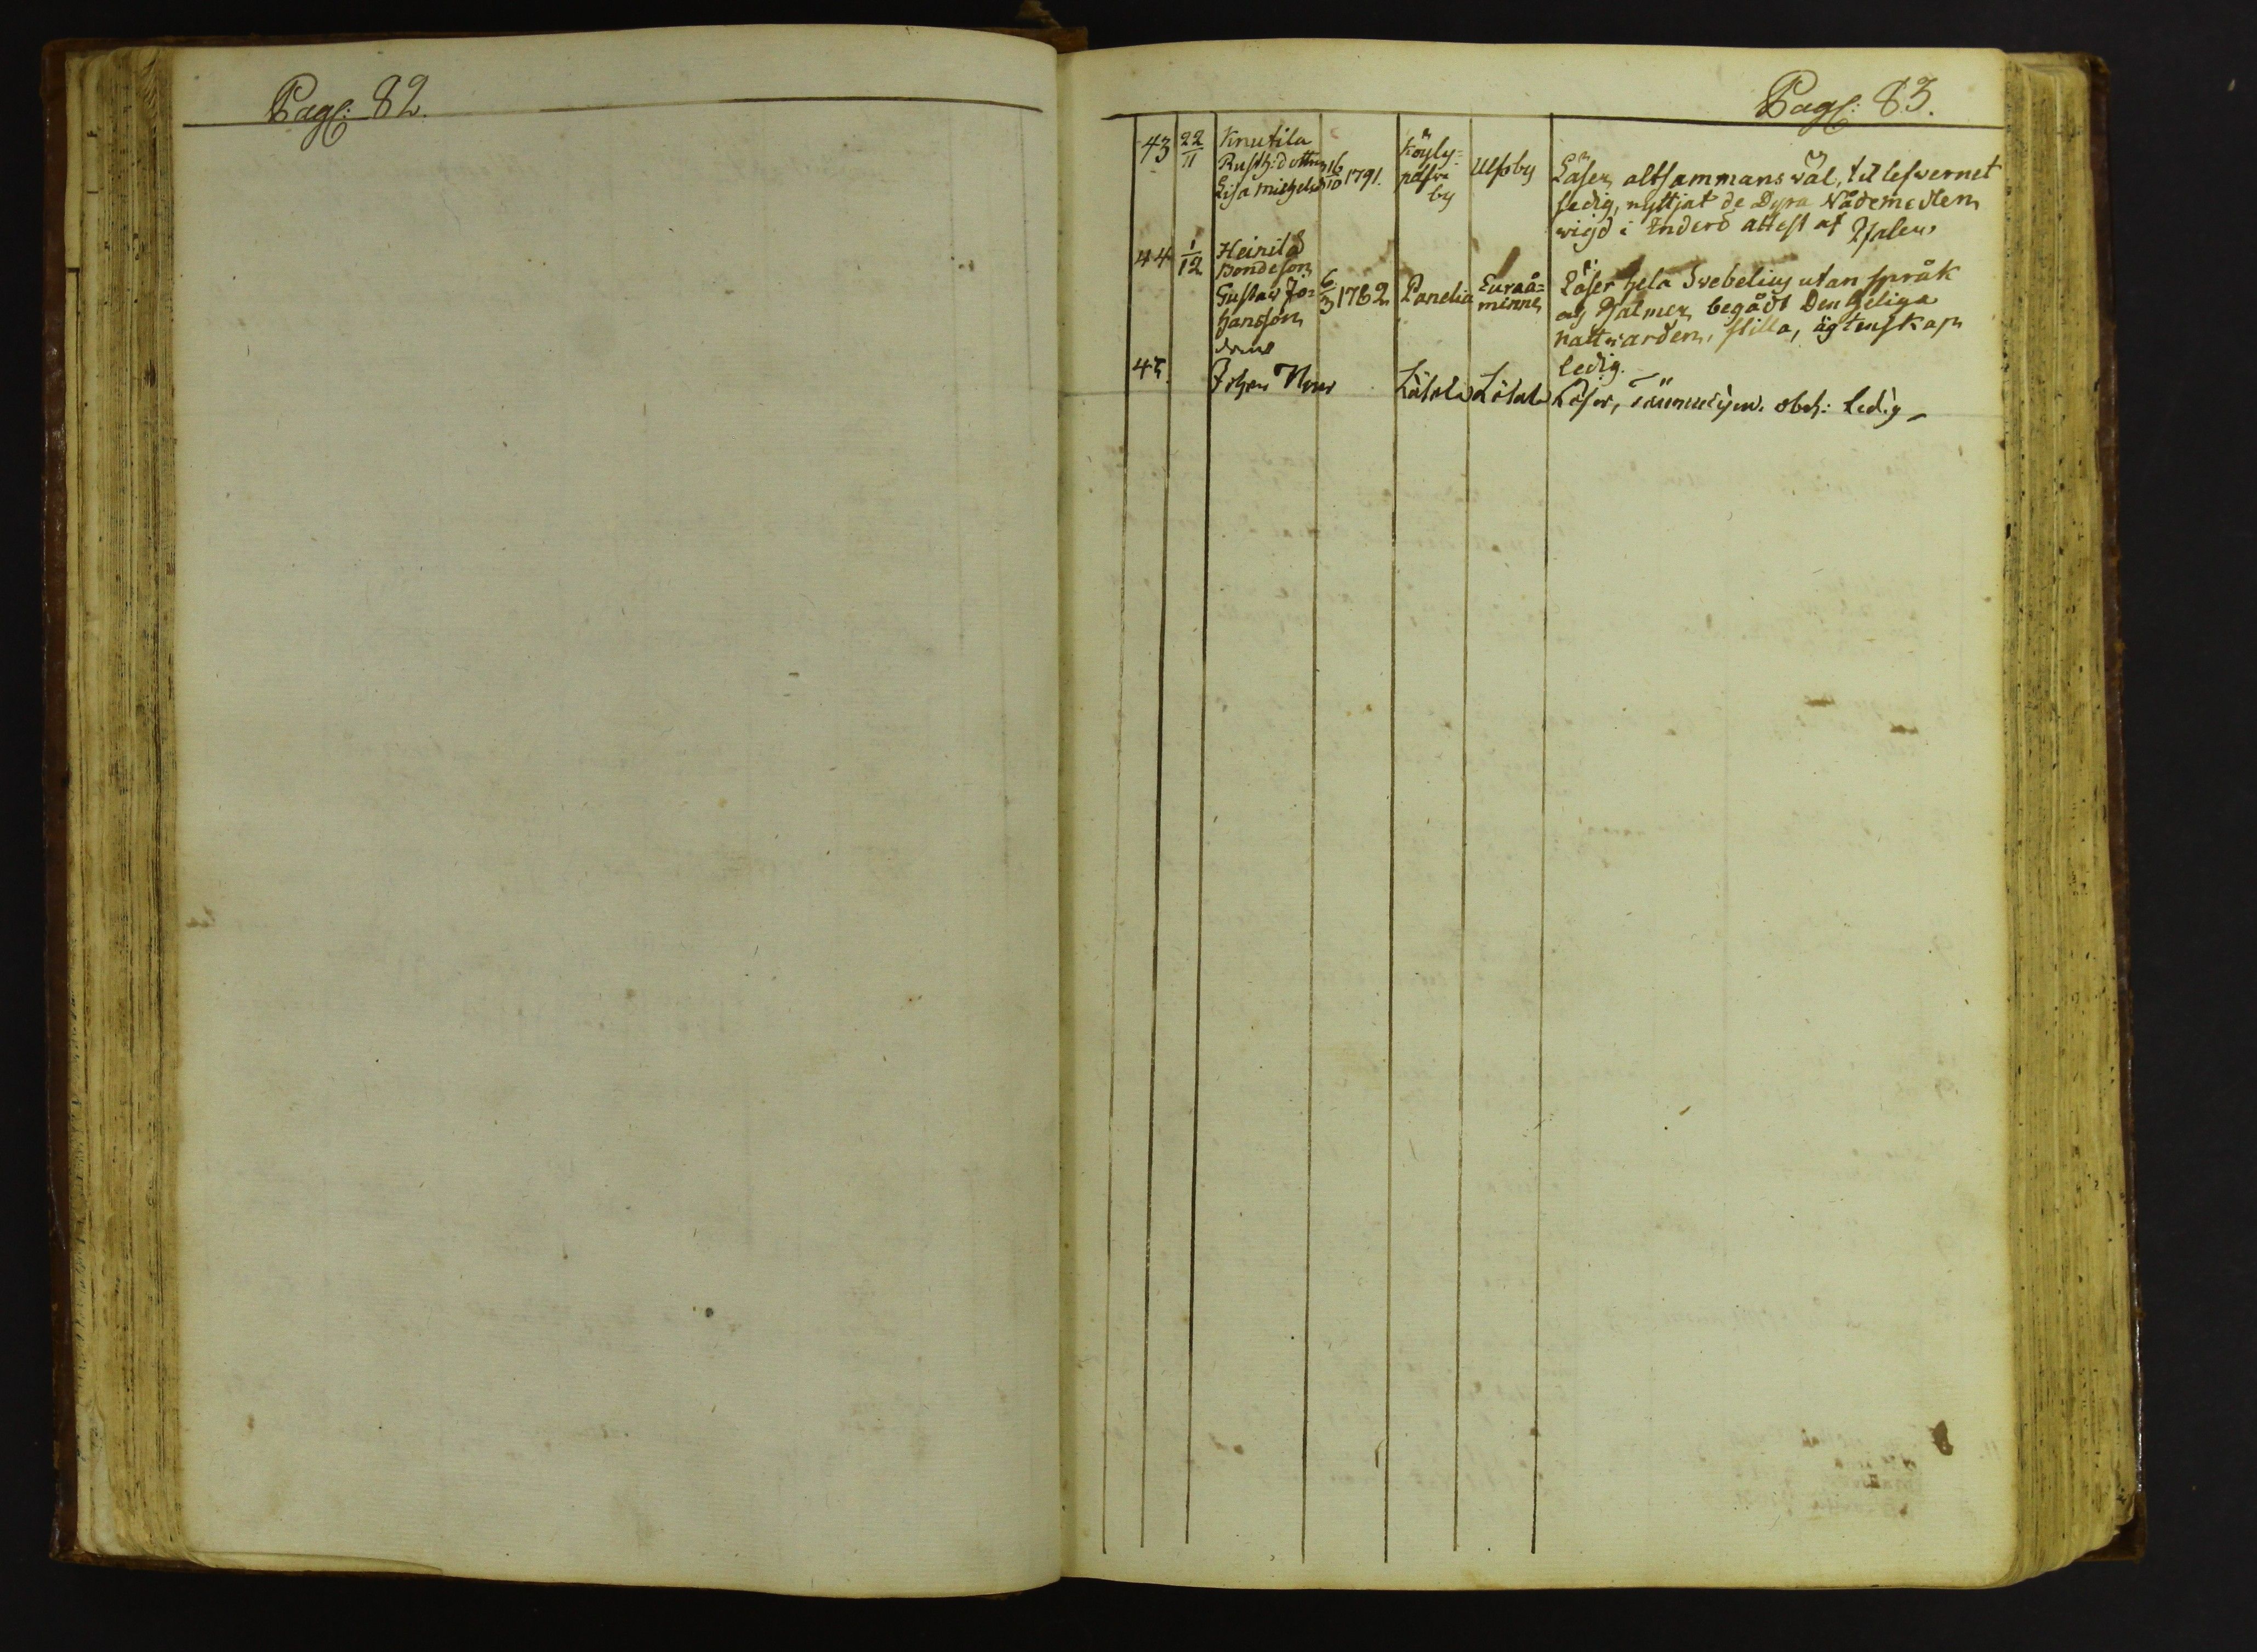 Pag: 82.
Pag: 83.
43 22/11 Knutila
Rusth: dotter
Lisa Michelsd 16/10 1791.
Köyly=
by
Ulfsby
Läser altsammans wäl, til lefwernet
sedig, nyttjat de Dyra Nådemedlen
wigd i attest af
44 1/12 Heinilä
Bondeson
Gustav Jo=
hansson
6/3 1782 Panelia Euraå=
minne
Läser hela Swebelius utan språk
og Psalmer, begådt Den Heliga
Nattwarden, stilla, ägtenskap
ledig.
45. Johan
Läser, ledig